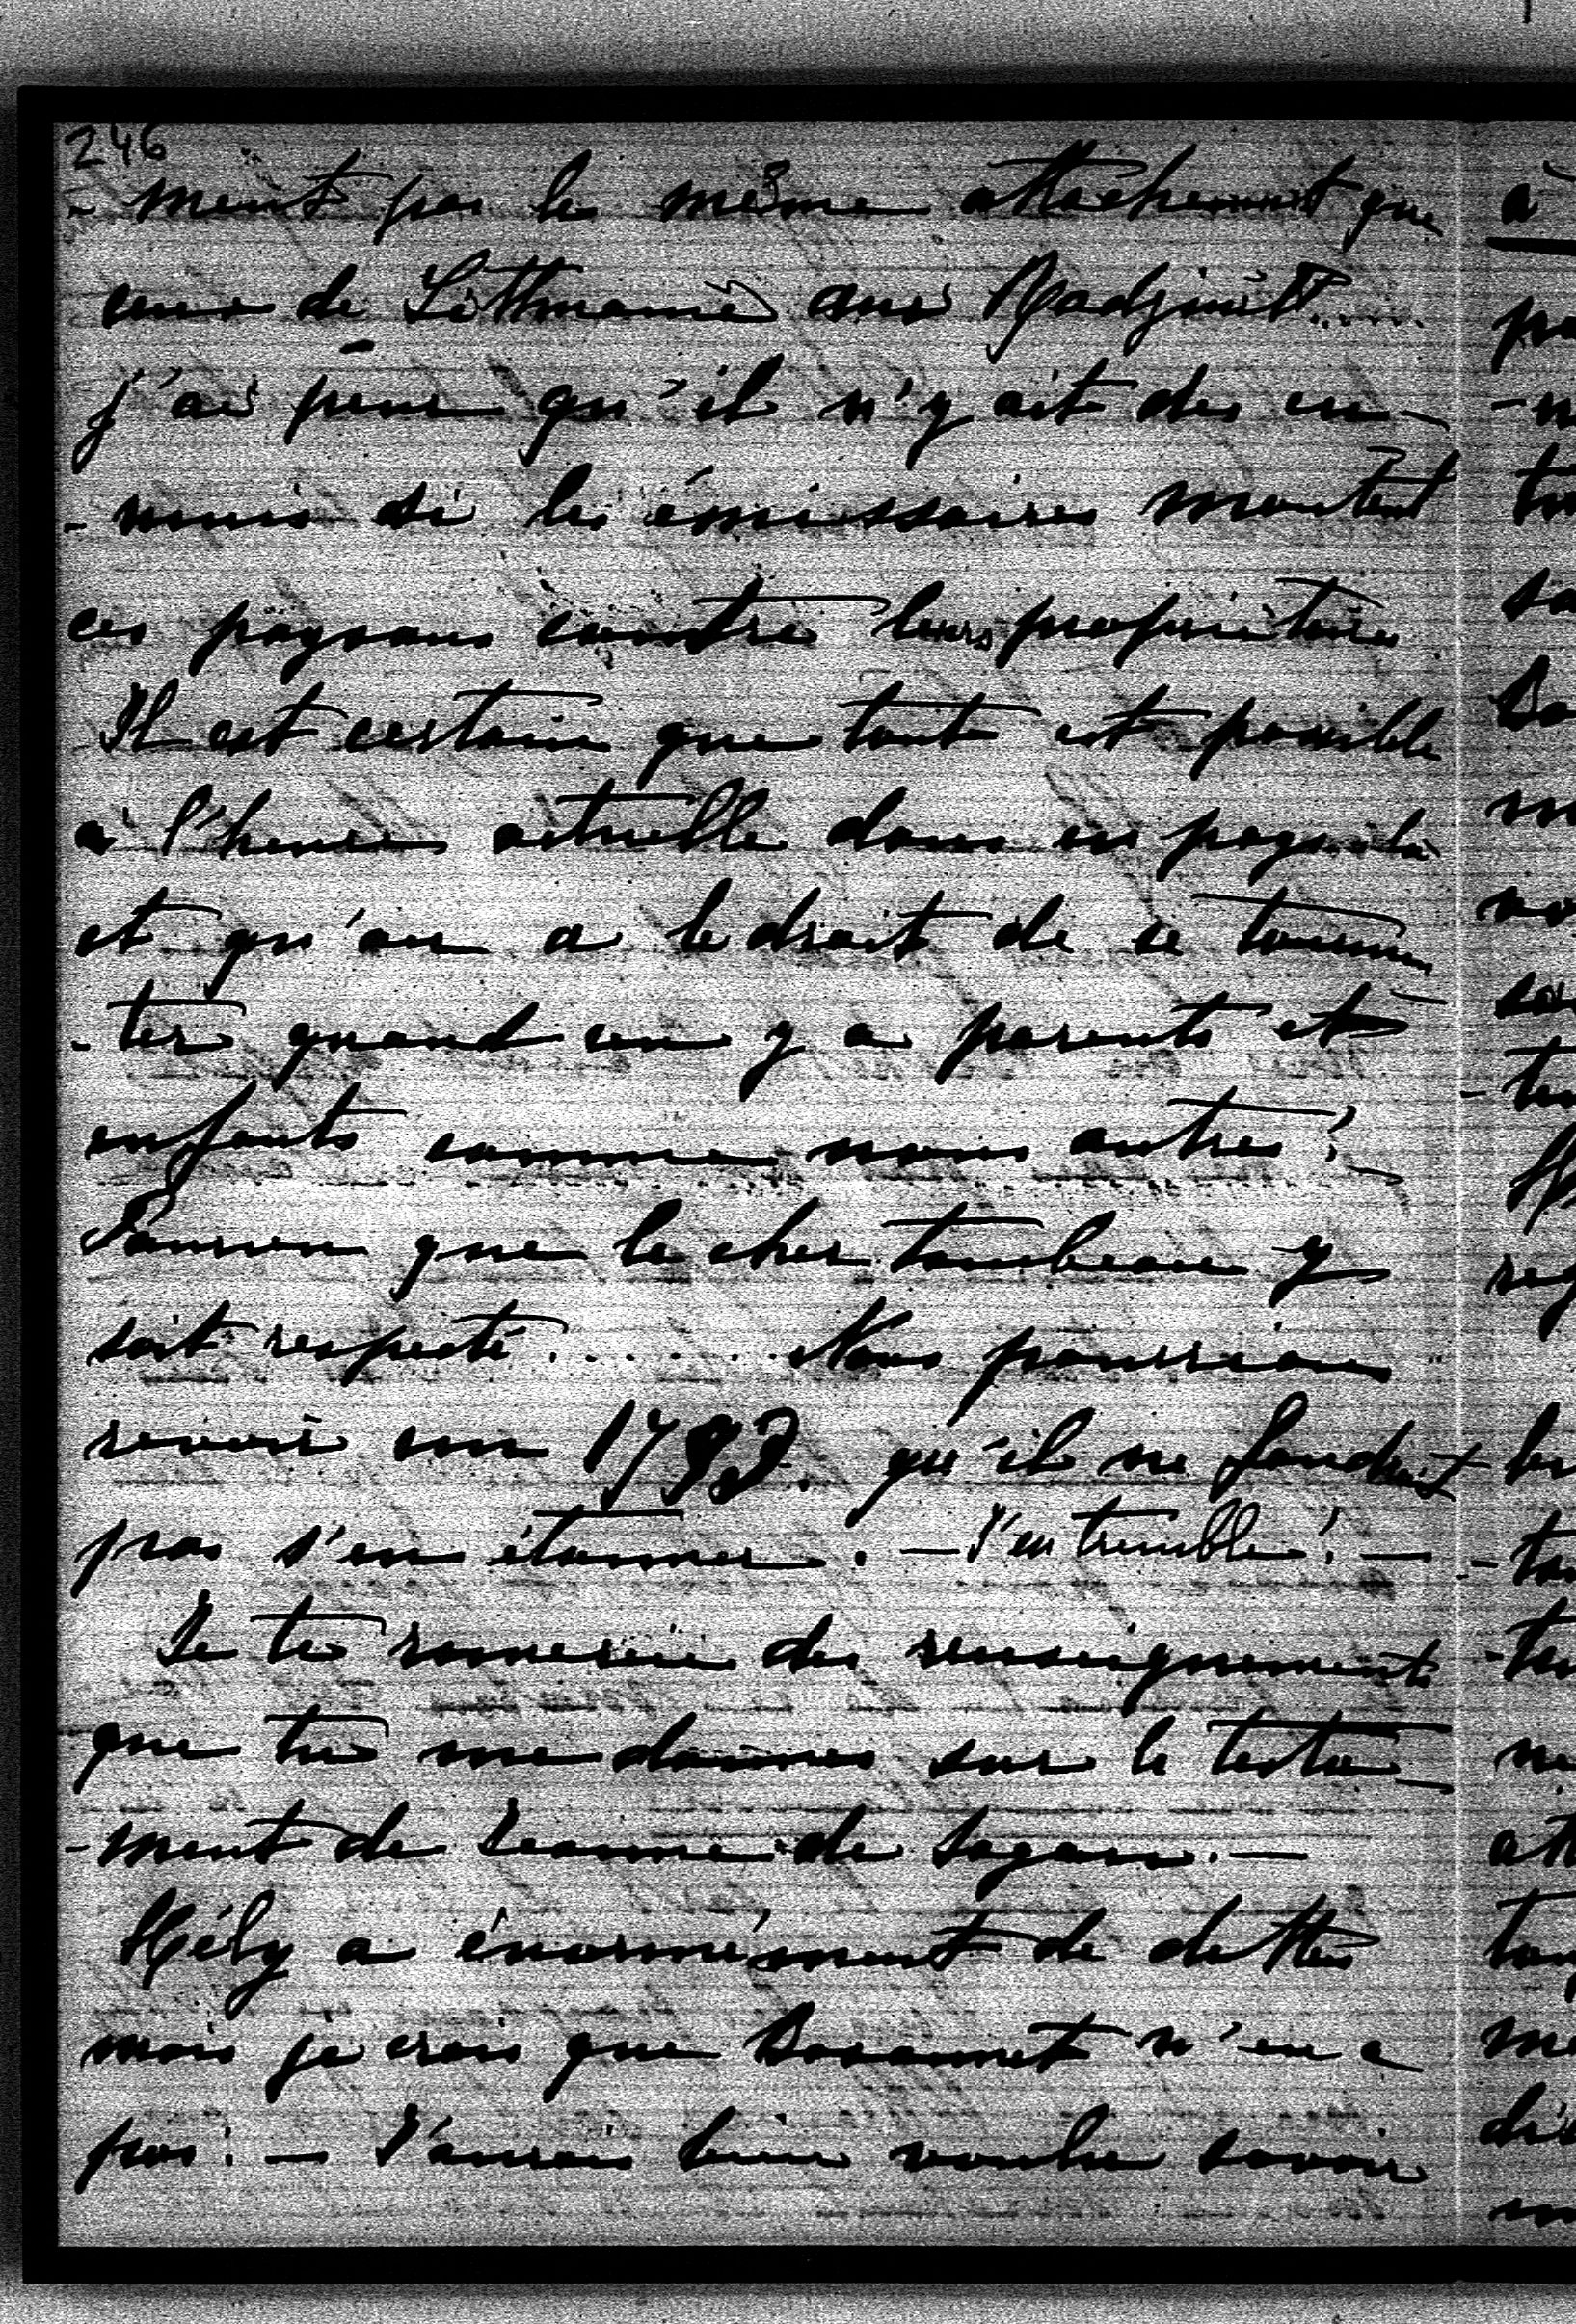 246
-ment pas le même attachement que
ceux de Litthuanie aux Radziwill.....
j'ai peur qu'il n'y ait des en-
-nuis si les émissaires montent
ces paysans contre leurs propriétaires
Il est certain que tout est possible
à l'heure actuelle dans ces pays-là
et qu'on a le droit de se tourmen
-ter quand on y a parents et
enfants comme nous autres!
Pourvu que le cher tombeau y
soit respecté........ Nous pourrions
revoir un 1792. qu'il ne faudrait
pas s'en étonner. — J'en tremble! —
Je te remercie des renseignements
que tu me donnes sur le testa-
-ment de Jeanne de Sagan. —
Hély a énormément de dettes
mais je crois que Bosonnet n'en a
pas. — J'aurais bien voulu savoir